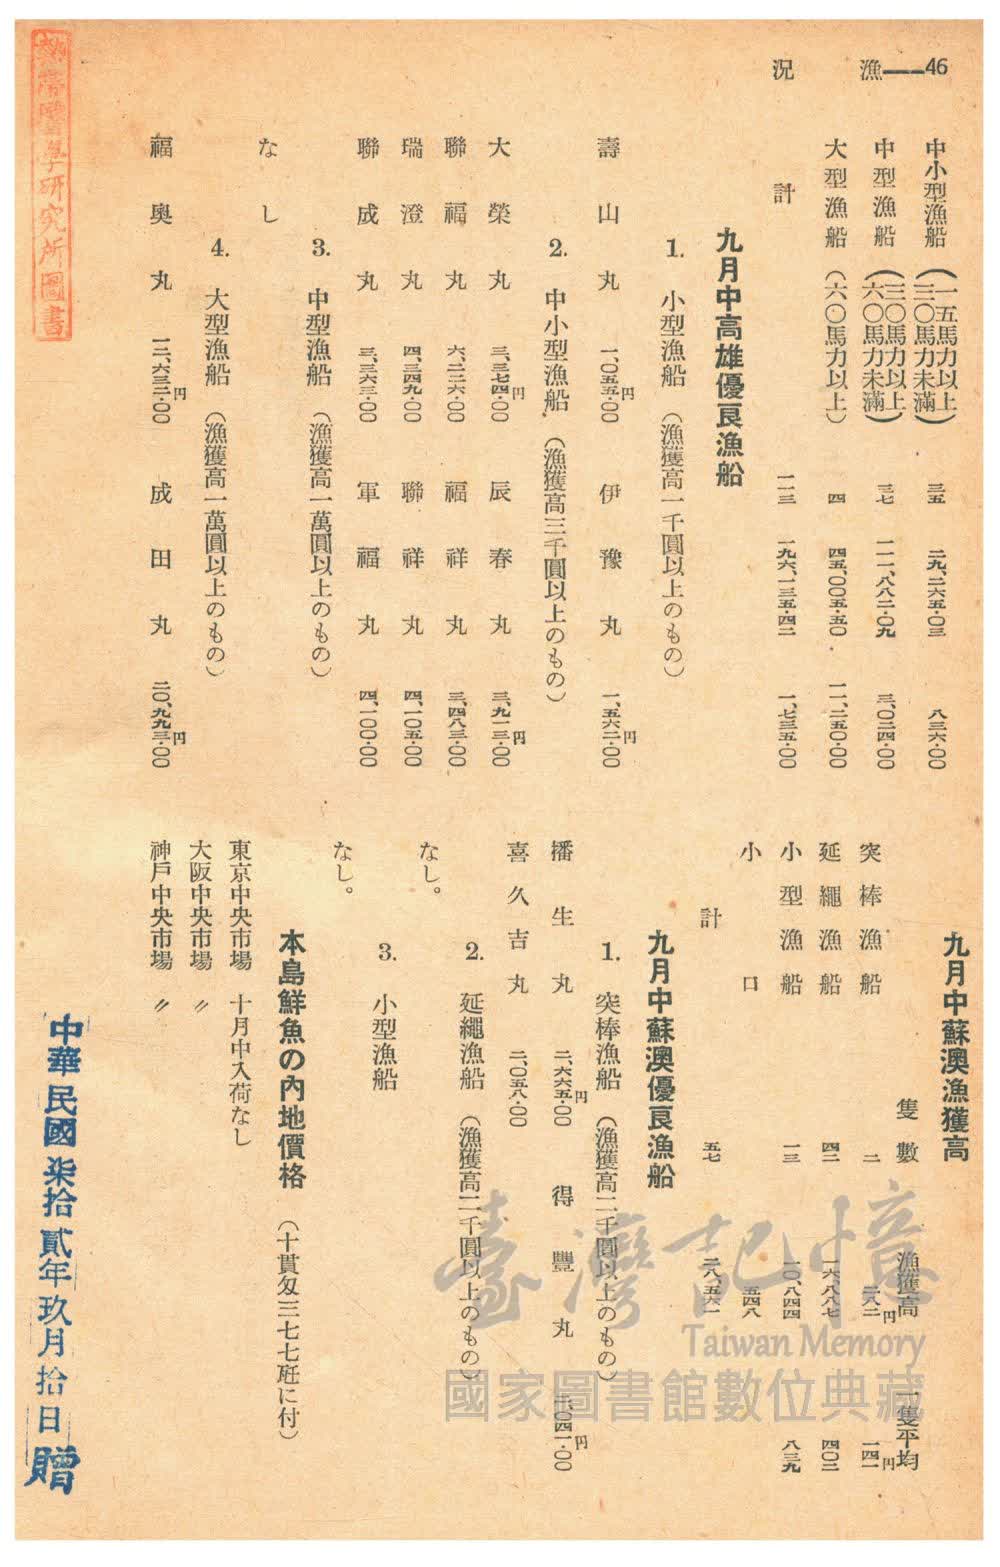 漁況——46
中小型漁船(一五馬力以上三〇馬力未滿) 三五 二九、二六五・〇三 八三六・〇〇
中型漁船(三〇馬力以上六〇馬力未滿) 三七 一一一、八八二・〇九 三、〇二四・〇〇
大型漁船(六〇馬力以上) 四 四五、〇〇五・五〇 一一、二五〇・〇〇
計 一一三 一九六、一三五・四二 一、七三五・〇〇
九月中高雄優良漁船
1. 小型漁船 (漁獲高一千圓以上のもの)
壽山丸 一、〇五五・〇〇円 伊豫丸 一、五六二・〇〇円
2. 中小型漁船 (漁獲高三千圓以上のもの)
大榮丸 三、三七四・〇〇円 辰春丸 三、九一三・〇〇円
聯福丸 六、二二六・〇〇 福祥丸 三、四八三・〇〇
瑞澄丸 四、三四九・〇〇 聯祥丸 四、一〇五・〇〇
聯成丸 三、三六三・〇〇 軍福丸 四、一〇〇・〇〇
3. 中型漁船 (漁獲高一萬圓以上のもの)
なし
4. 大型漁船 (漁獲高一萬圓以上のもの)
福奧丸 一二、六三二・〇〇円 成田丸 二〇、九九三・〇〇円
九月中蘇澳漁獲高
隻數 漁獲高 一隻平均
突棒漁船 二 二八二円 一四一円
延繩漁船 四二 一六、八八七 四〇二
小型漁船 一三 一〇、八四四 八三九
小口 五四八
計 五七 二八、五六一
九月中蘇澳優良漁船
1. 突棒漁船 (漁獲高二千圓以上のもの)
播生丸 二、六六五・〇〇円 得豐丸 二、〇四一・〇〇円
喜久吉丸 二、〇五八・〇〇
2. 延繩漁船 (漁獲高二千圓以上のもの)
なし。
3. 小型漁船
なし。
本島鮮魚の內地價格 (十貫匁三七七瓩に付)
東京中央市場 十月中入荷なし
大阪中央市場 〃
神戶中央市場 〃
熱帶醫學研究所圖書
中華民國柒拾貳年玖月拾日贈
臺灣記憶
Taiwan Memory
國家圖書館數位典藏